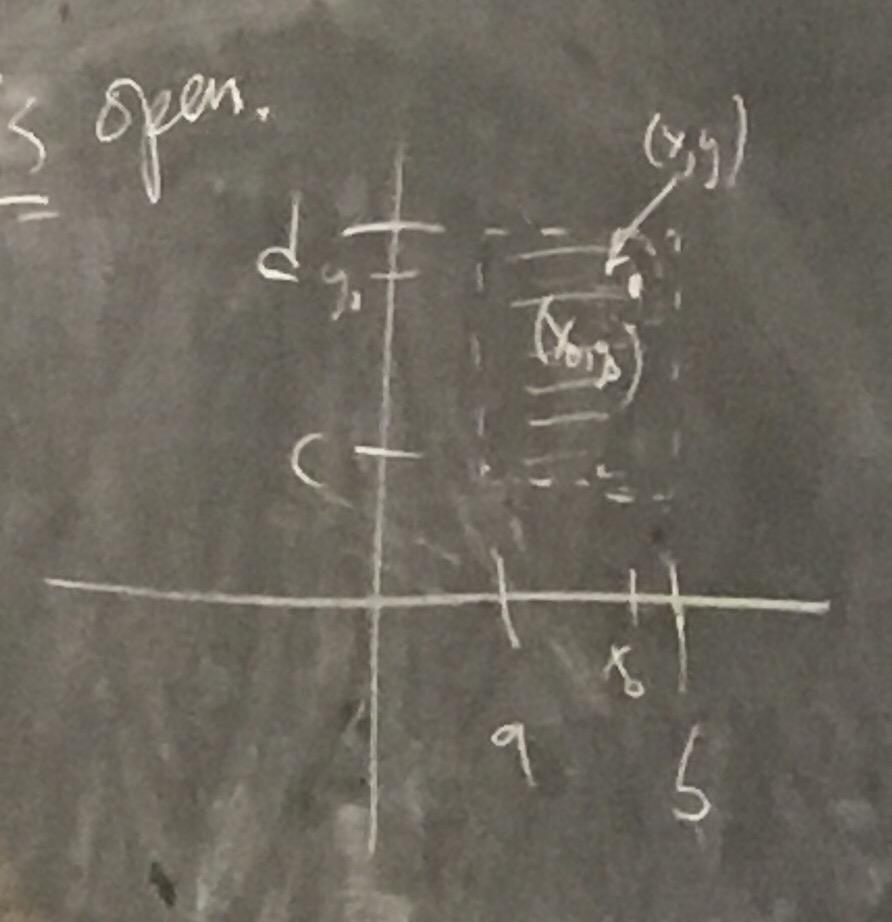 is open.
(x,y)
d
y₀
(x₀,y₀)
c
x₀
a
b